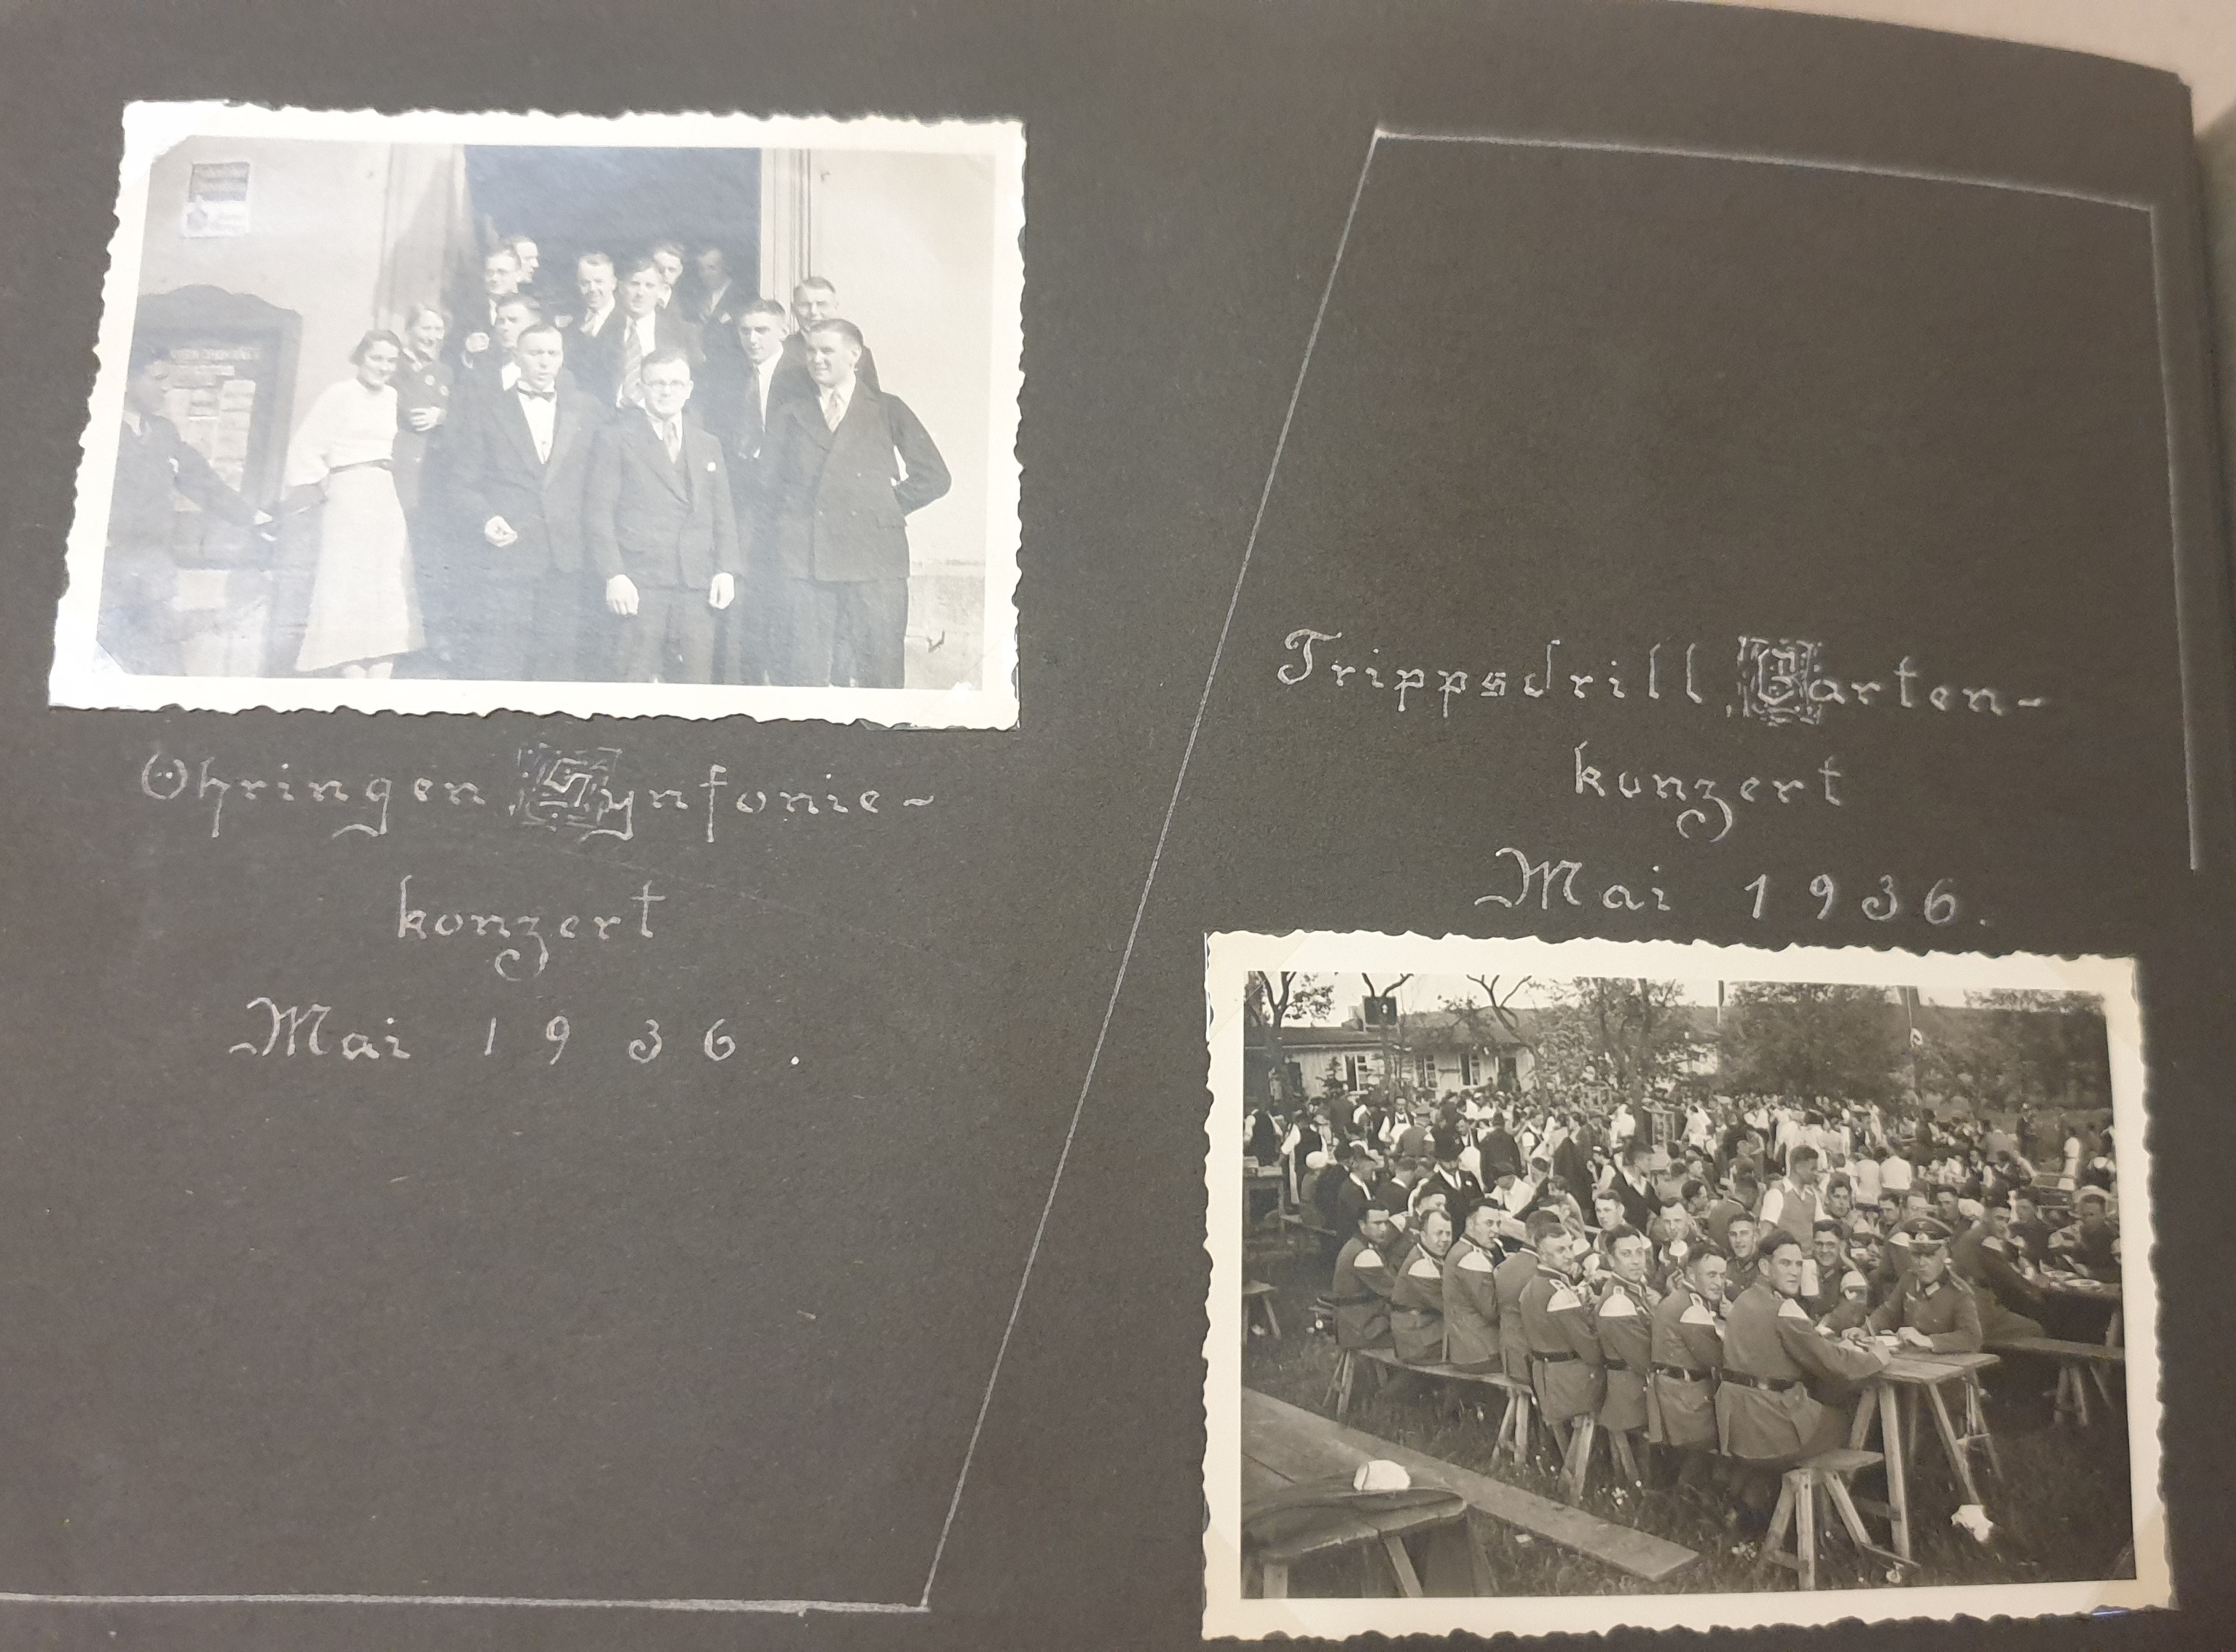 Öhringen, Synfonie-
konzert
Mai 1936.
Trippsdrill, Garten-
konzert
Mai 1936.